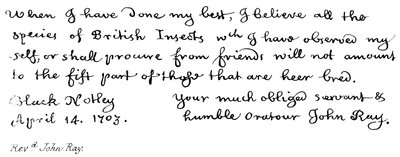 When I have done my best, I believe all the
species of British Insects wch I have observed my
self, or shall procure from friends will not amount
to the fift part of those that are heer bred.
Black Notley Your much obliged servant &
April 14. 1703. humble Oratour John Ray.
Revd. John Ray.